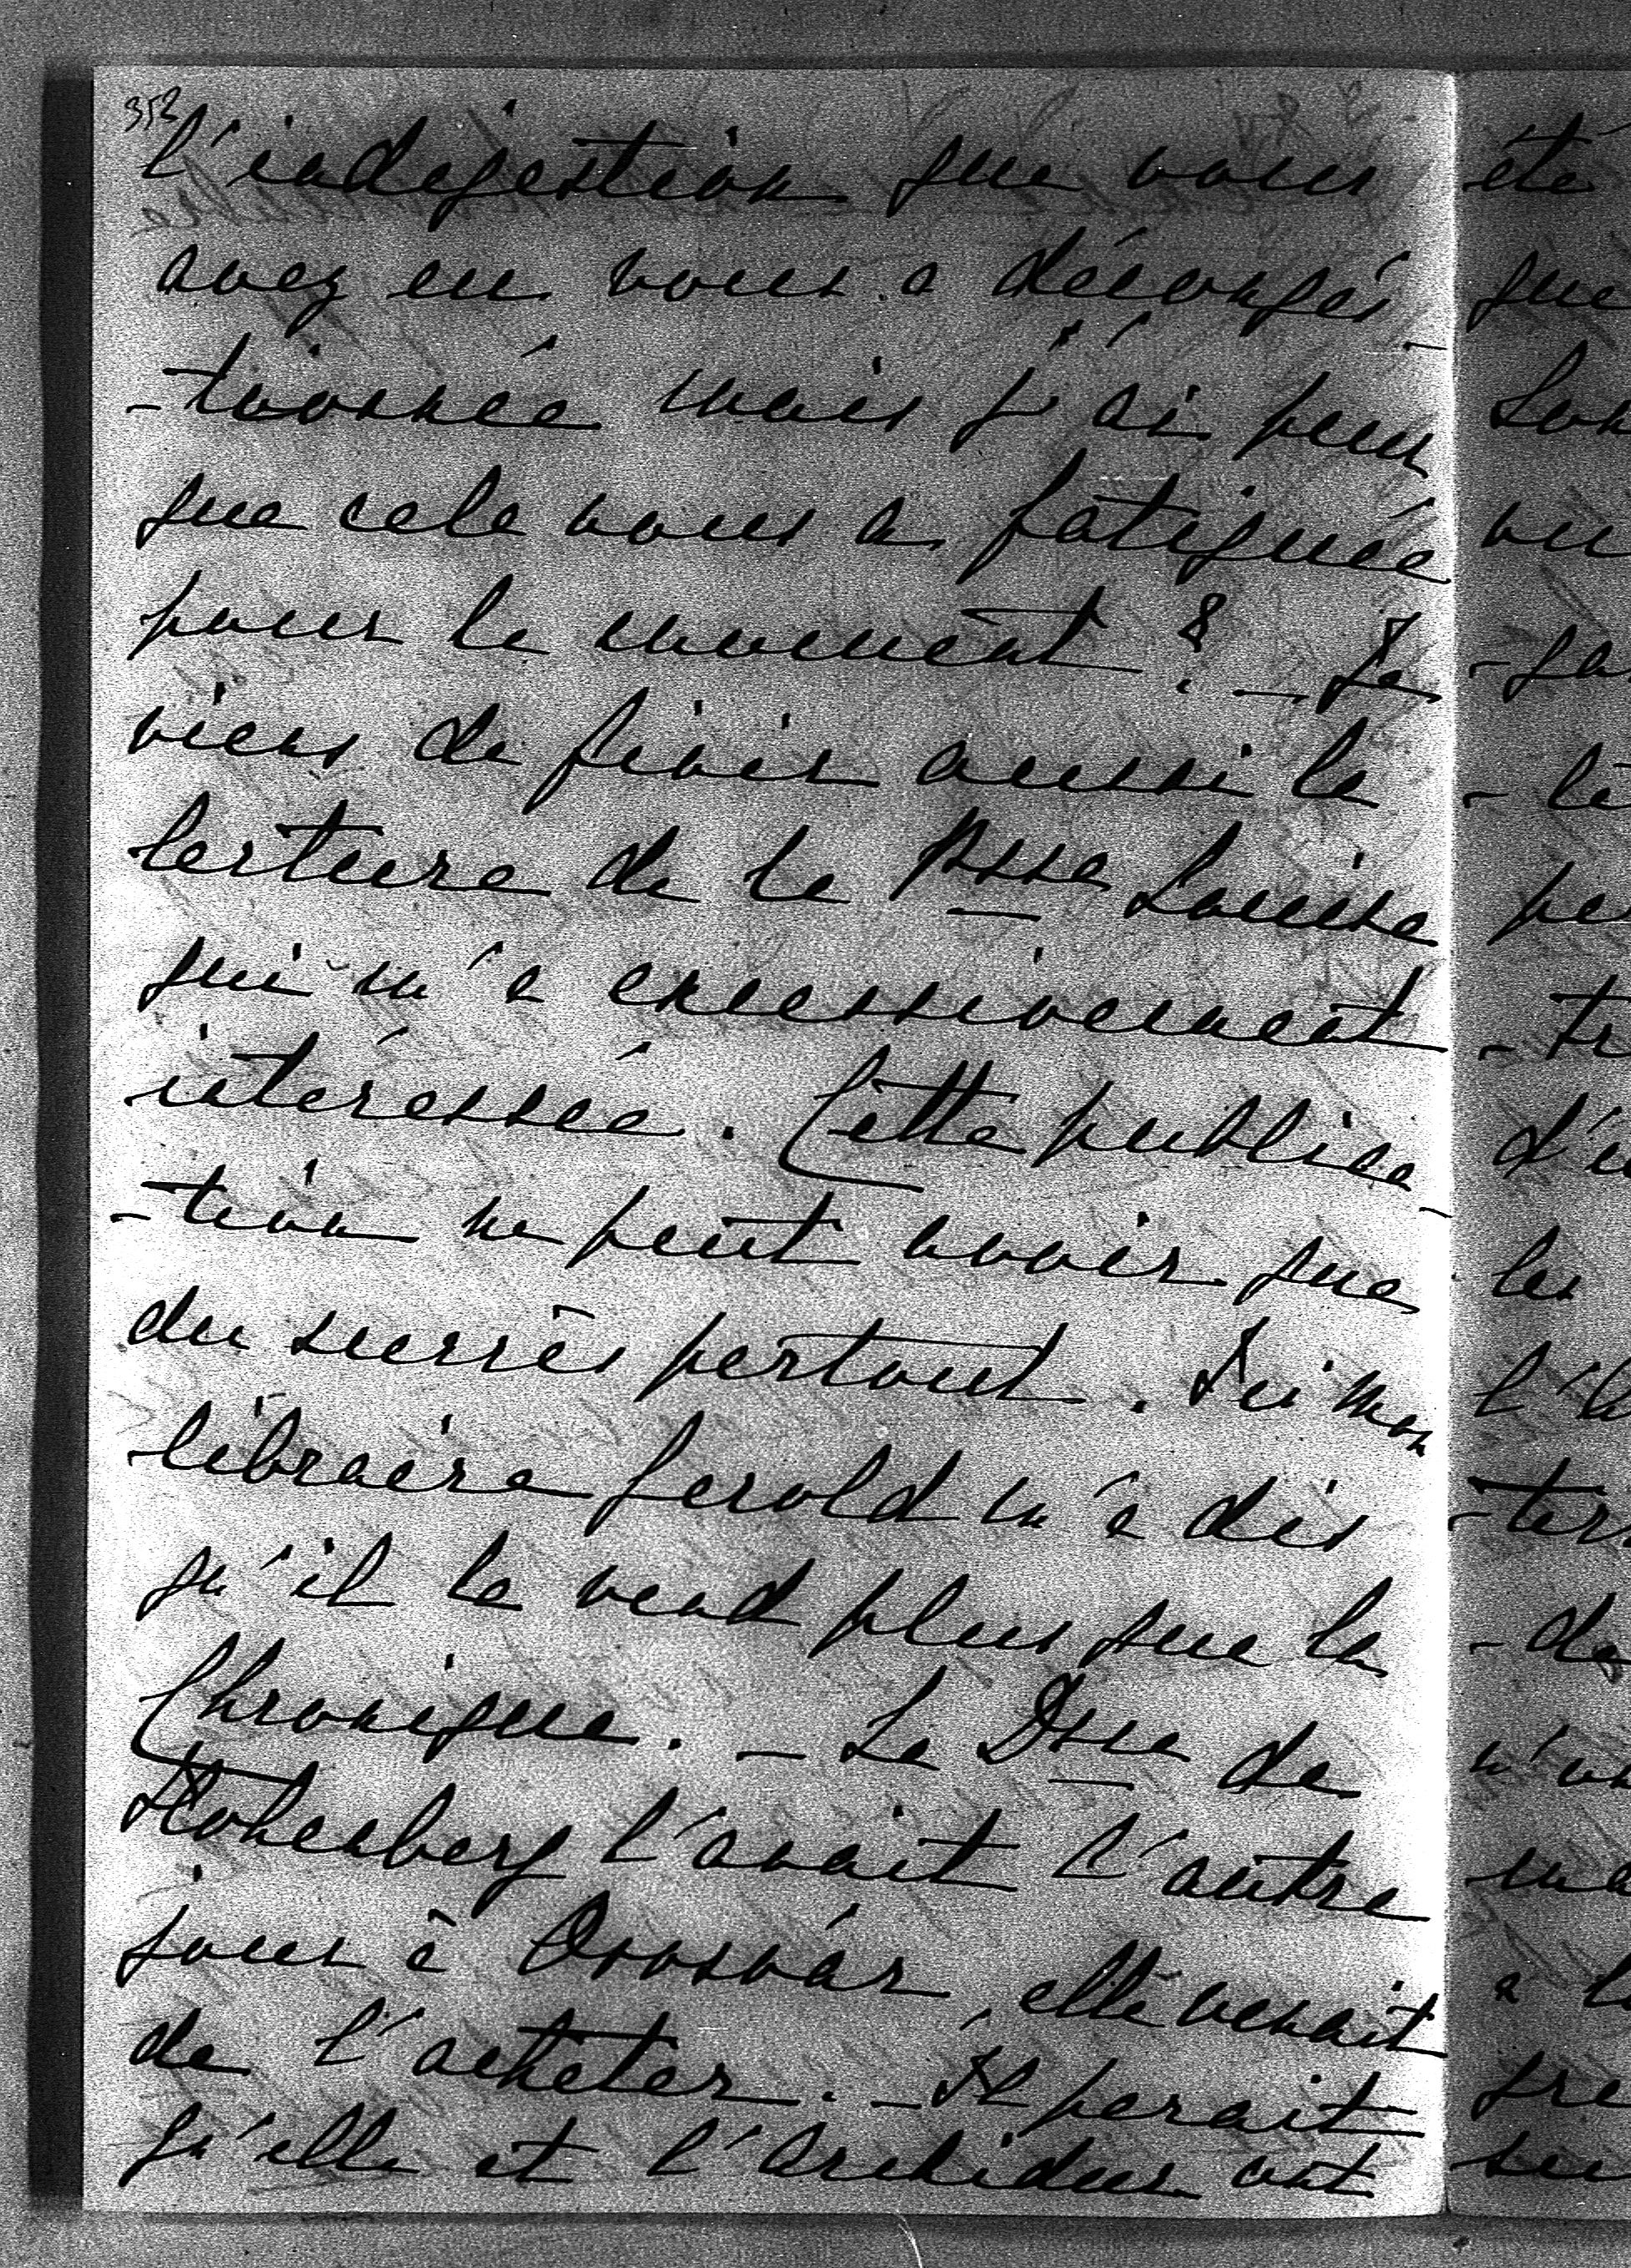 352
l'indigestion que vous
avez eu vous a décongés-
-tionnée mais j'ai peur
que cela vous a fatiguée
pour le moment ? — Je
viens de finir aussi la
lecture de la Psse Louise
qui m'a excessivement
intéressée. Cette publica-
-tion ne peut avoir que
du succès partout. Ici mon
libraire Gerold m'a dis
qu'il le vend plus que la
Chronique. — La Dsse de
Hohenberg l'avait l'autre
jour à Oroszvár, elle venait
de l'acheter. — Il parait
qu'elle et l'Archiduc ont
été
que
vu
les